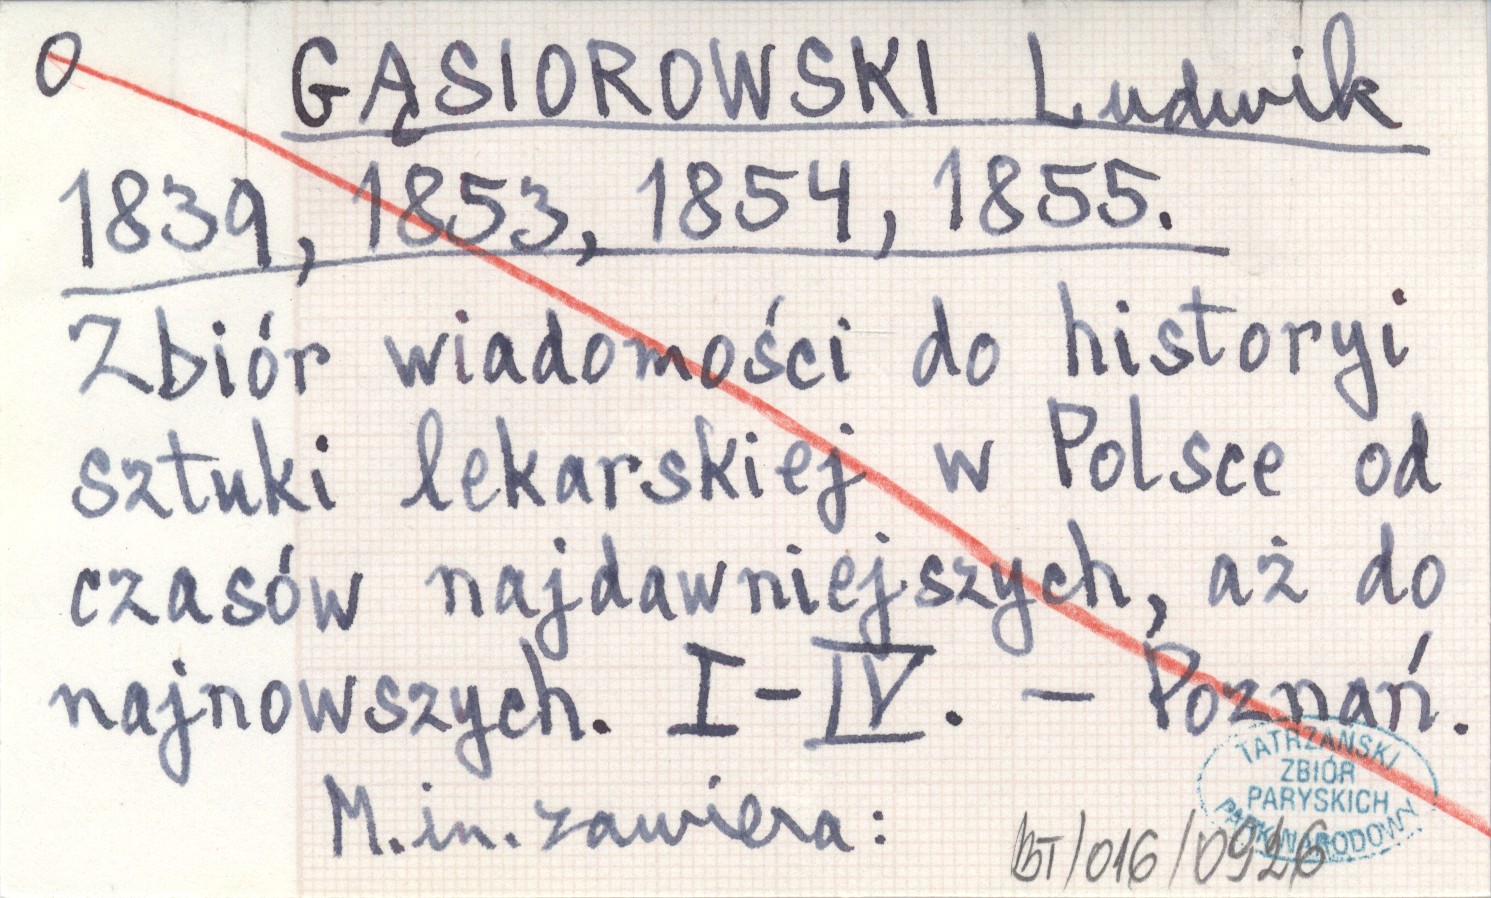 0 GĄSIOROWSKI Ludwik
1839, 1853, 1854, 1855.
Zbiór wiadomości do historyi
sztuki lekarskiej w Polsce od
czasów najdawniejszych, aż do
najnowszych. I-IV. — Poznań.
M.in. zawiera:
TATRZAŃSKI
ZBIÓR
PARYSKICH
PARK NARODOWY
BT/016/0926